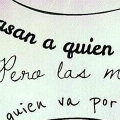 asan a quien
Pero las m
quien va por